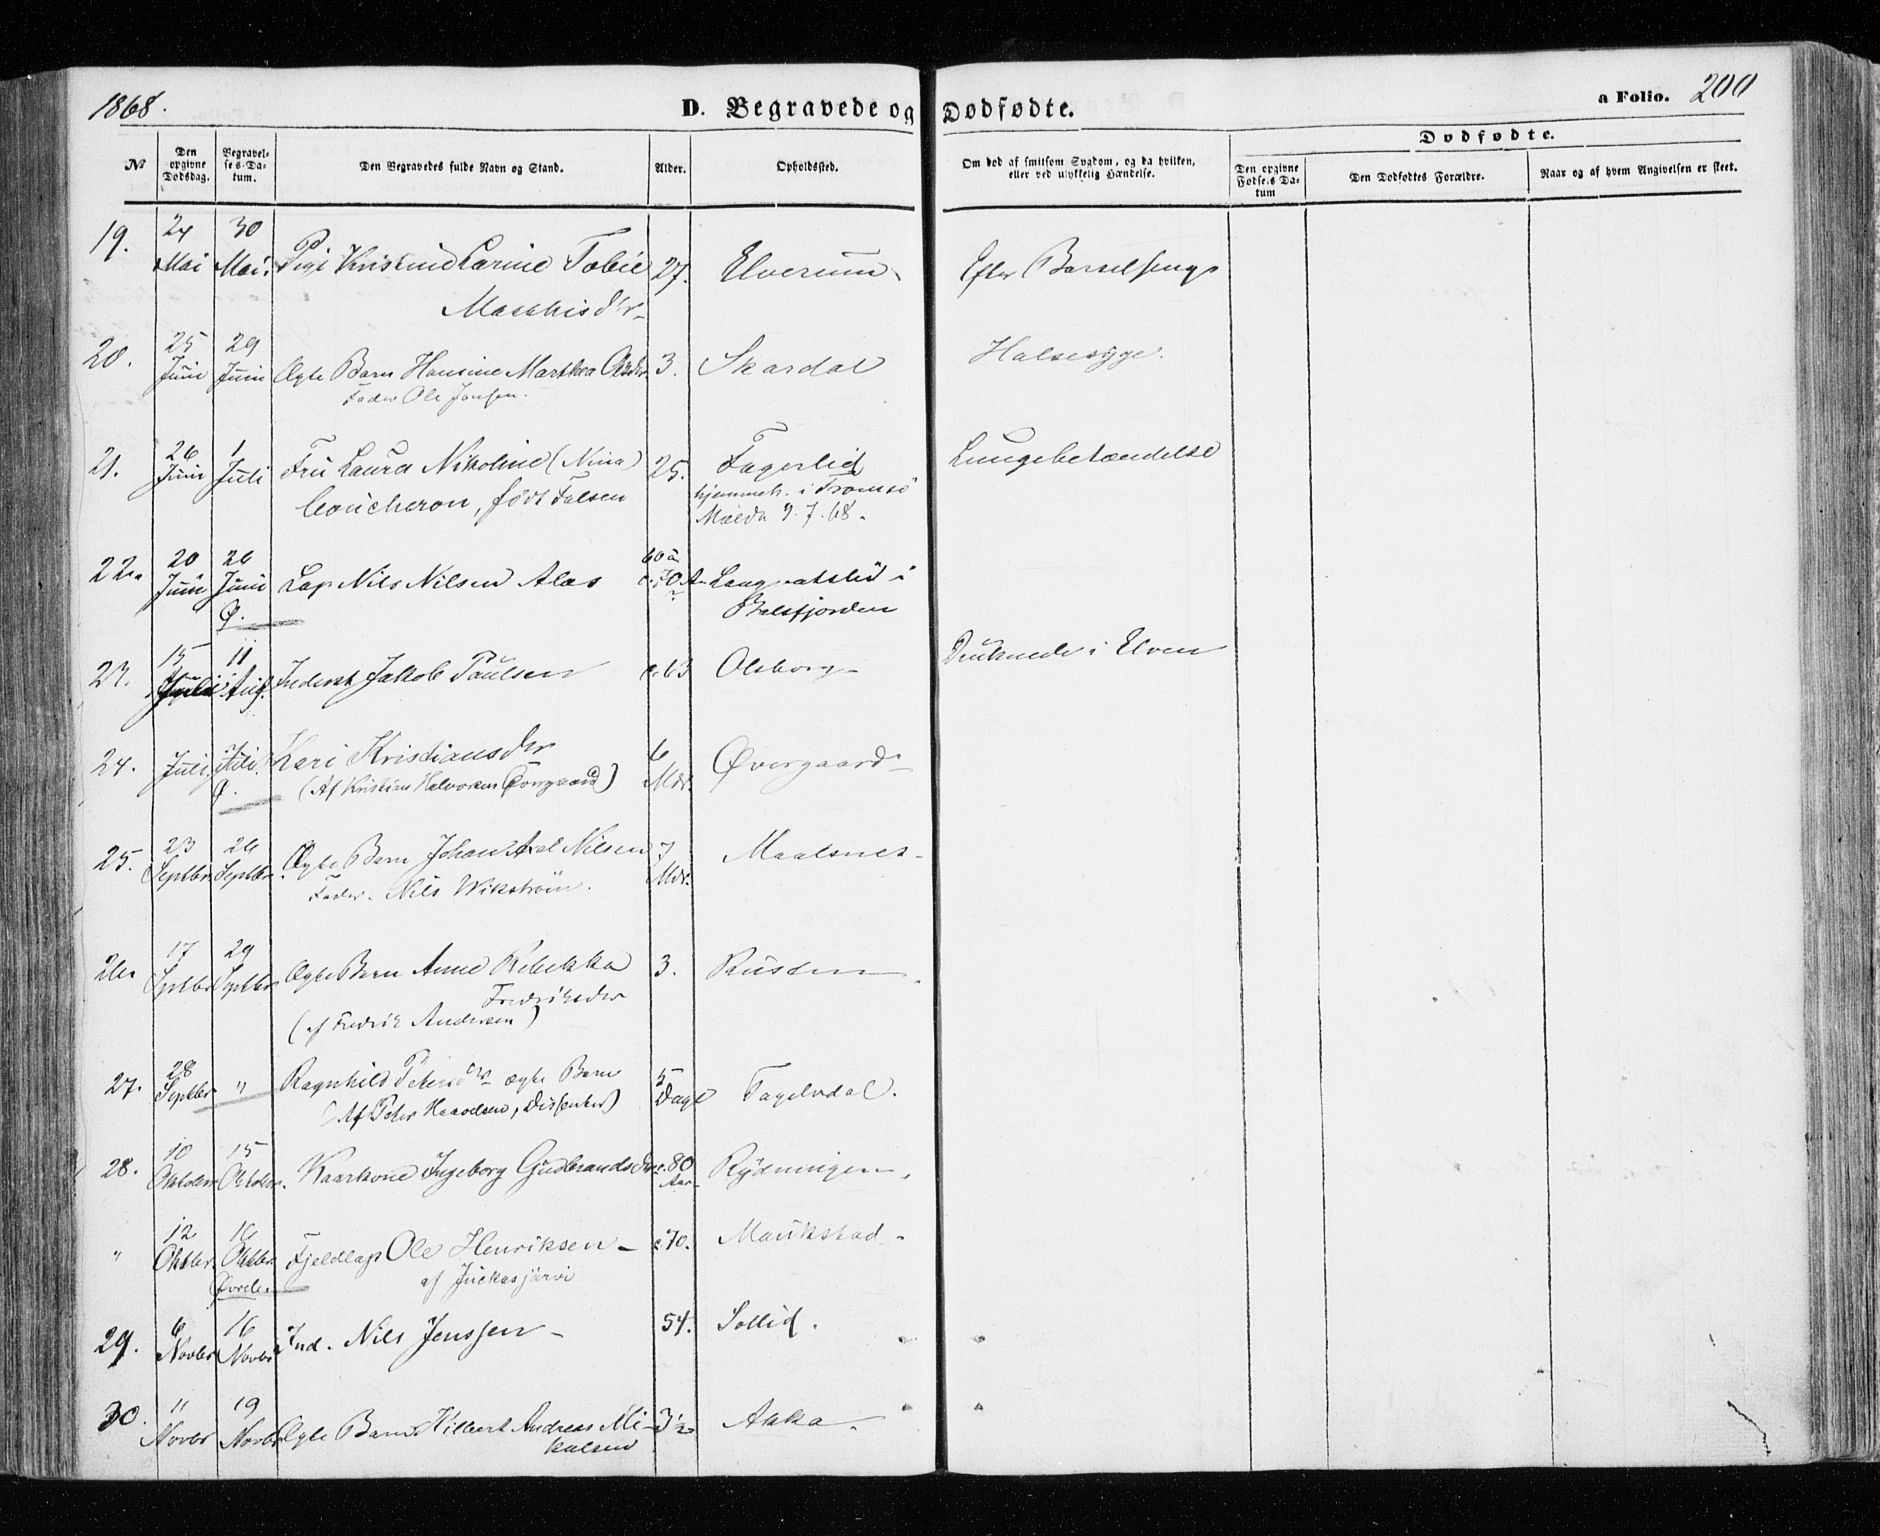 1868.
D. Begravede og Dødfødte.
a Folio. 200
No
Den opgivne Dødsdag.
Begravelses-Datum.
Den Begravedes fulde Navn og Stand.
Alder.
Opholdssted.
Om død af smitsom Sygdom, og da hvilken, eller ved ulykkelig Hændelse.
Dødfødte.
Den opgivne Fødsels Datum
Den Dødfødtes Forældre.
Naar og af hvem Angivelsen er skeet.
19. 24 Mai 30 Mai. Pige Kristine Karine Tobie 27. Elverum Efter Barselseng
Matthisdr
20. 25 Juni 29 Juni Ægte Barn Hansine Marthea Olsdr. 3. Skardal Halsesyge.
Fader Ole Jonsen.
21. 26 Juni 1 Juli Fru Laura Nikoline (Nina) 25. Fagerlid Lungebetændelse
Coucheron, født Falsen hjemmeh. i Tromsø
Meldt 9.7.68.
22. 20 Juni 26 Juni Ø. Lap Nils Nilsen Alas 60 à c. 70 A i
Balsfjorden
23. 15 Juli 11 Aug. Inderst Jakob Paulsen c. 63 Olsborg Druknede i Elven
24. Juli Juli Ø. Kari Kristiansdr 6 Mdr. Øvergaard
(Af Kristian Halvorsen Øvergaard)
25. 23 Septbr 26 Septbr. Ægte Barn Johan Axel Nilsen 7 Mdr. Maalsnes
Fader. Nils Wikstrøm.
26. 17 Septbr 29 Septbr Ægte Barn Anne Rebekka 3. Rusten
Fredriksdr
(af Fredrik Andersen)
27. 28 Septbr " Ragnhild Petersdr ægte Barn 5 Dage Fagelvdal.
(Af Peter Haavelsen, Dissenter)
28. 10 Oktober 15 Oktober. Kaarkone Ingeborg Gudbrandsdr c. 80 Aar Rydningen.
" 12 Oktbr. 16 Oktbr. Øvrele. Fjeldlap Ole Henriksen c 70. Maukstad
af Juckasjärvi
29. 6 Novbr 16 Novbr Ind. Nils Jenssen 54. Sollid.
30. " Novbr 19 Novbr Ægte Barn Hilbert Andreas Mi- 3½ Akka
kalsen